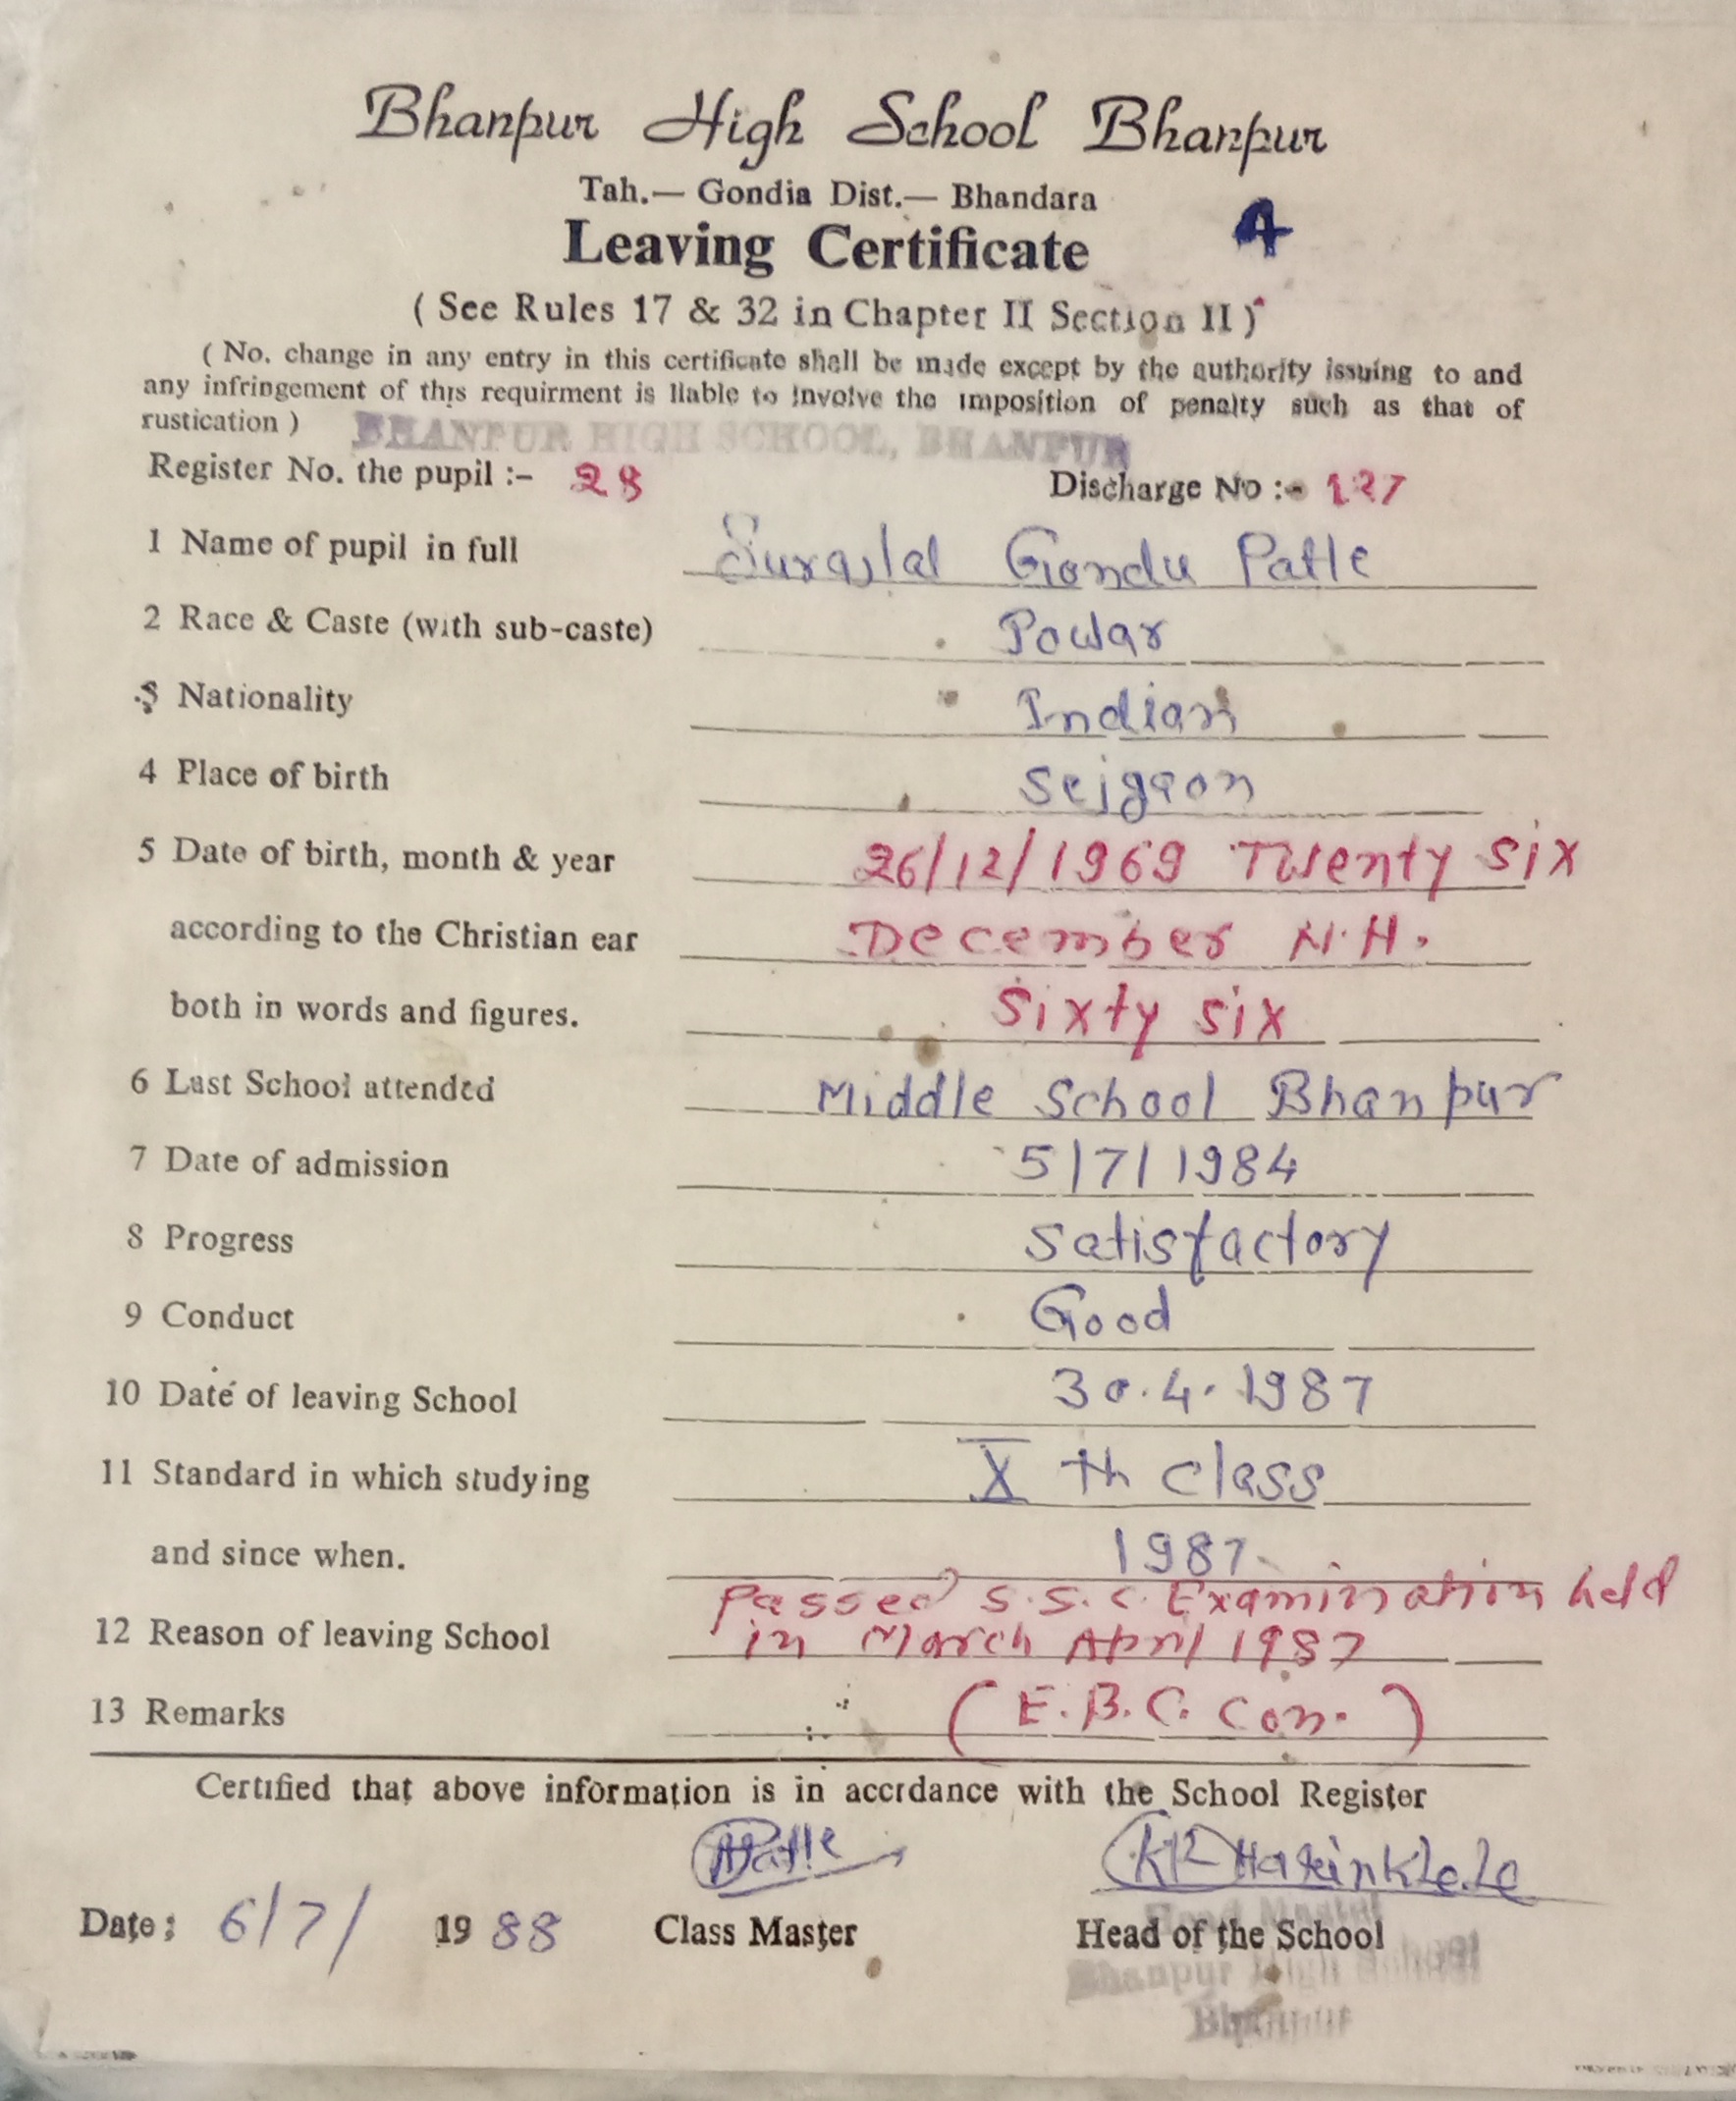 Bhanpur High School Bhanpur
Tah.— Gondia Dist.— Bhandara
Leaving Certificate 4
( See Rules 17 & 32 in Chapter II Section II )
( No. change in any entry in this certificate shall be made except by the authority issuing to and
any infringement of this requirment is liable to involve the imposition of penalty such as that of
rustication )
BHANPUR HIGH SCHOOL, BHANPUR
Register No. the pupil :- 28 Discharge No :- 127
1 Name of pupil in full Surajlal Gondu Patle
2 Race & Caste (with sub-caste) Powar
3 Nationality Indian
4 Place of birth Sejgaon
5 Date of birth, month & year 26/12/1969 Twenty six
according to the Christian ear December N.H.
both in words and figures. Sixty six
6 Last School attended Middle School Bhanpur
7 Date of admission 5/7/1984
8 Progress Satisfactory
9 Conduct Good
10 Date of leaving School 30.4.1987
11 Standard in which studying X th class
and since when. 1987
Passed S.S.C. Examination held
12 Reason of leaving School in March April 1987
13 Remarks (E.B.C. Con.)
Certified that above information is in accrdance with the School Register
Patle
Date: 6/7/ 1988 Class Master Head of the School
Head Master
Bhanpur High School
Bhanpur